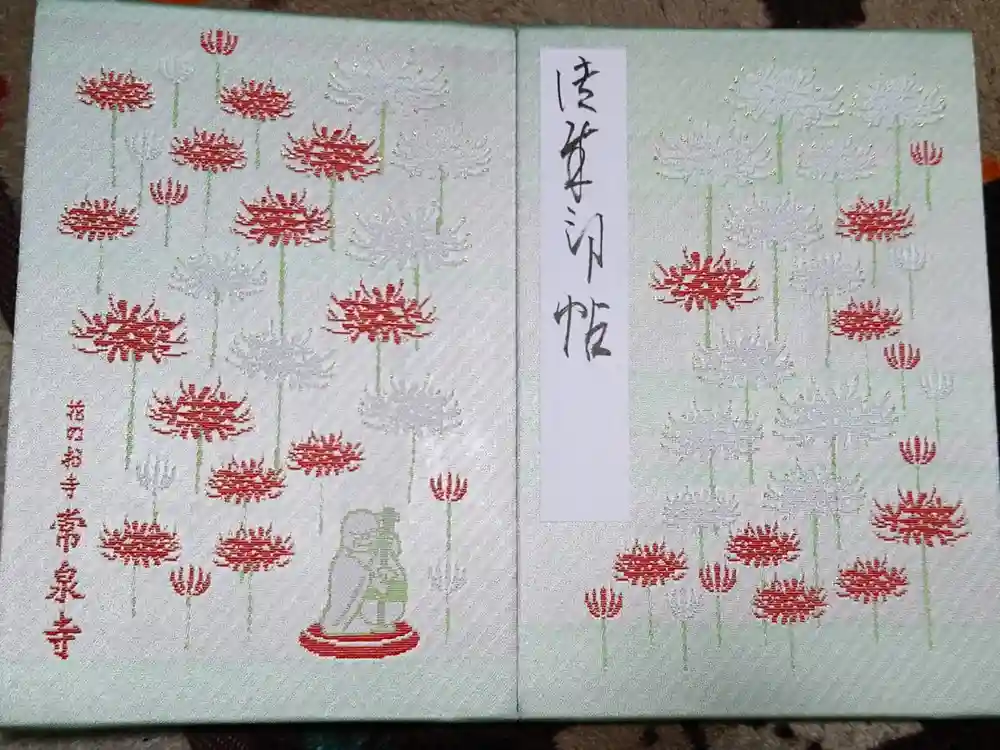 御朱印帖
花のお寺 常泉寺